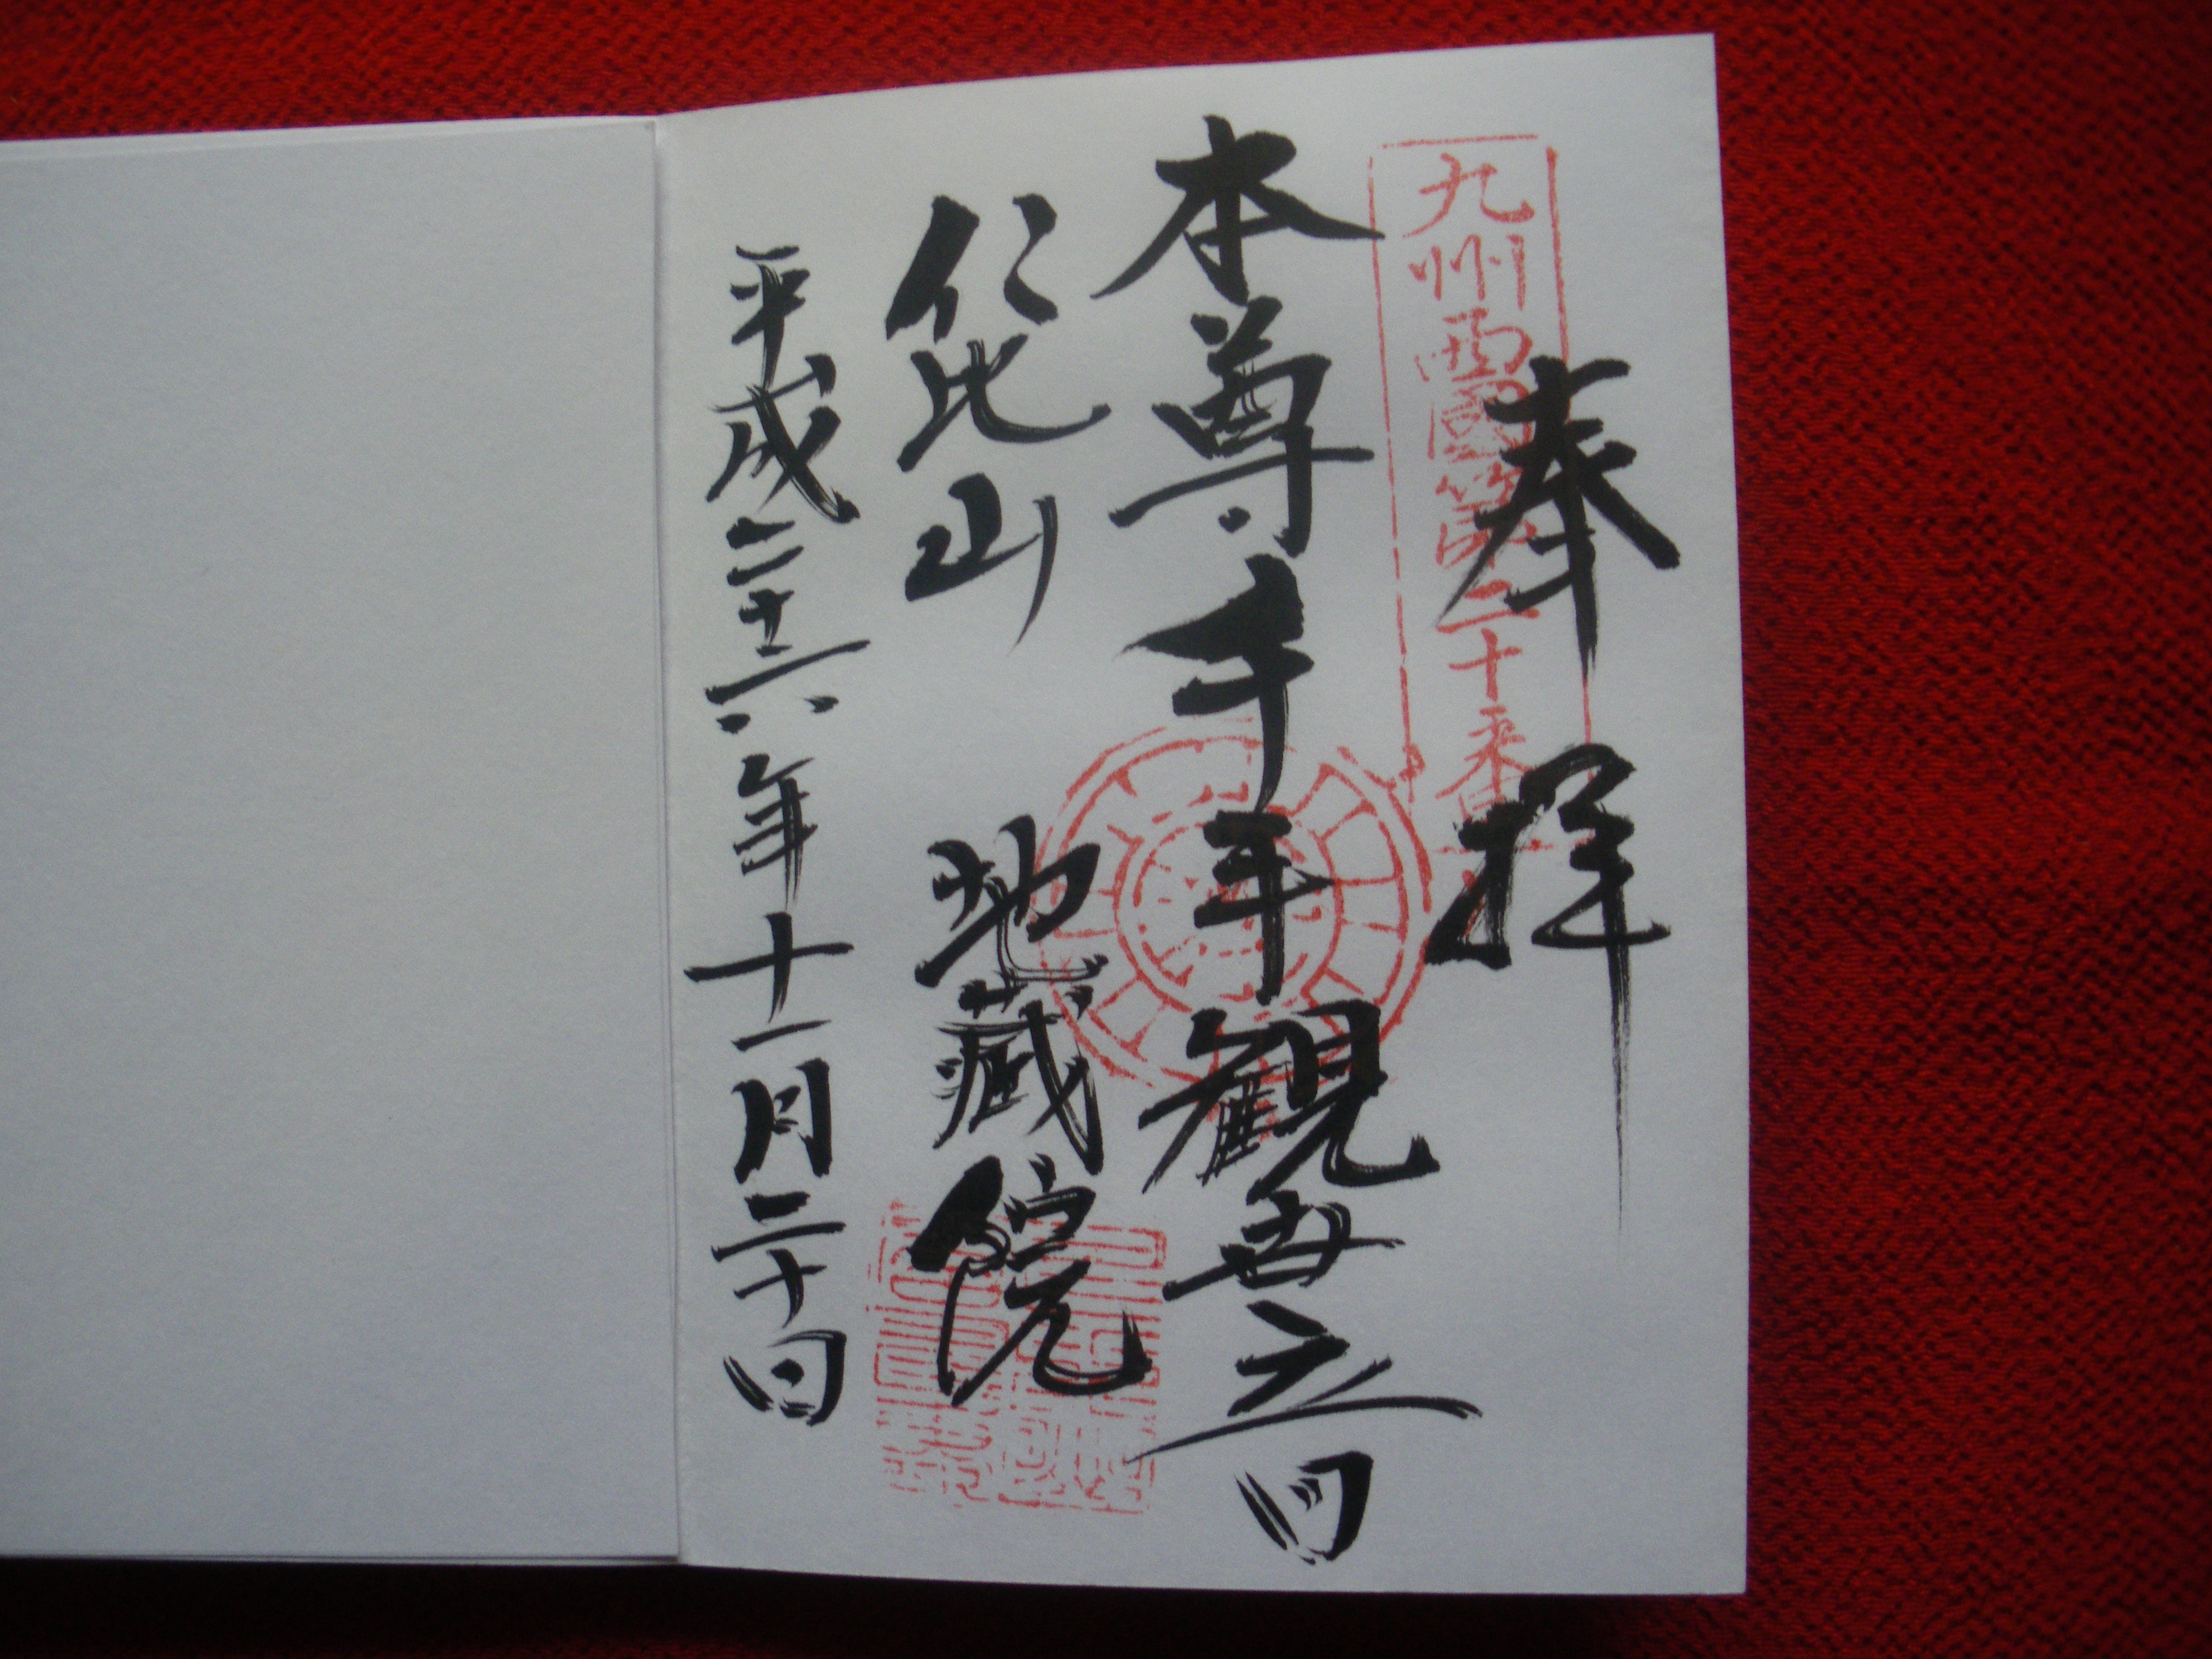 奉拝
九州西國第二十番
本尊千手観世音
仁比山 地蔵院
平成二十六年十一月二十日